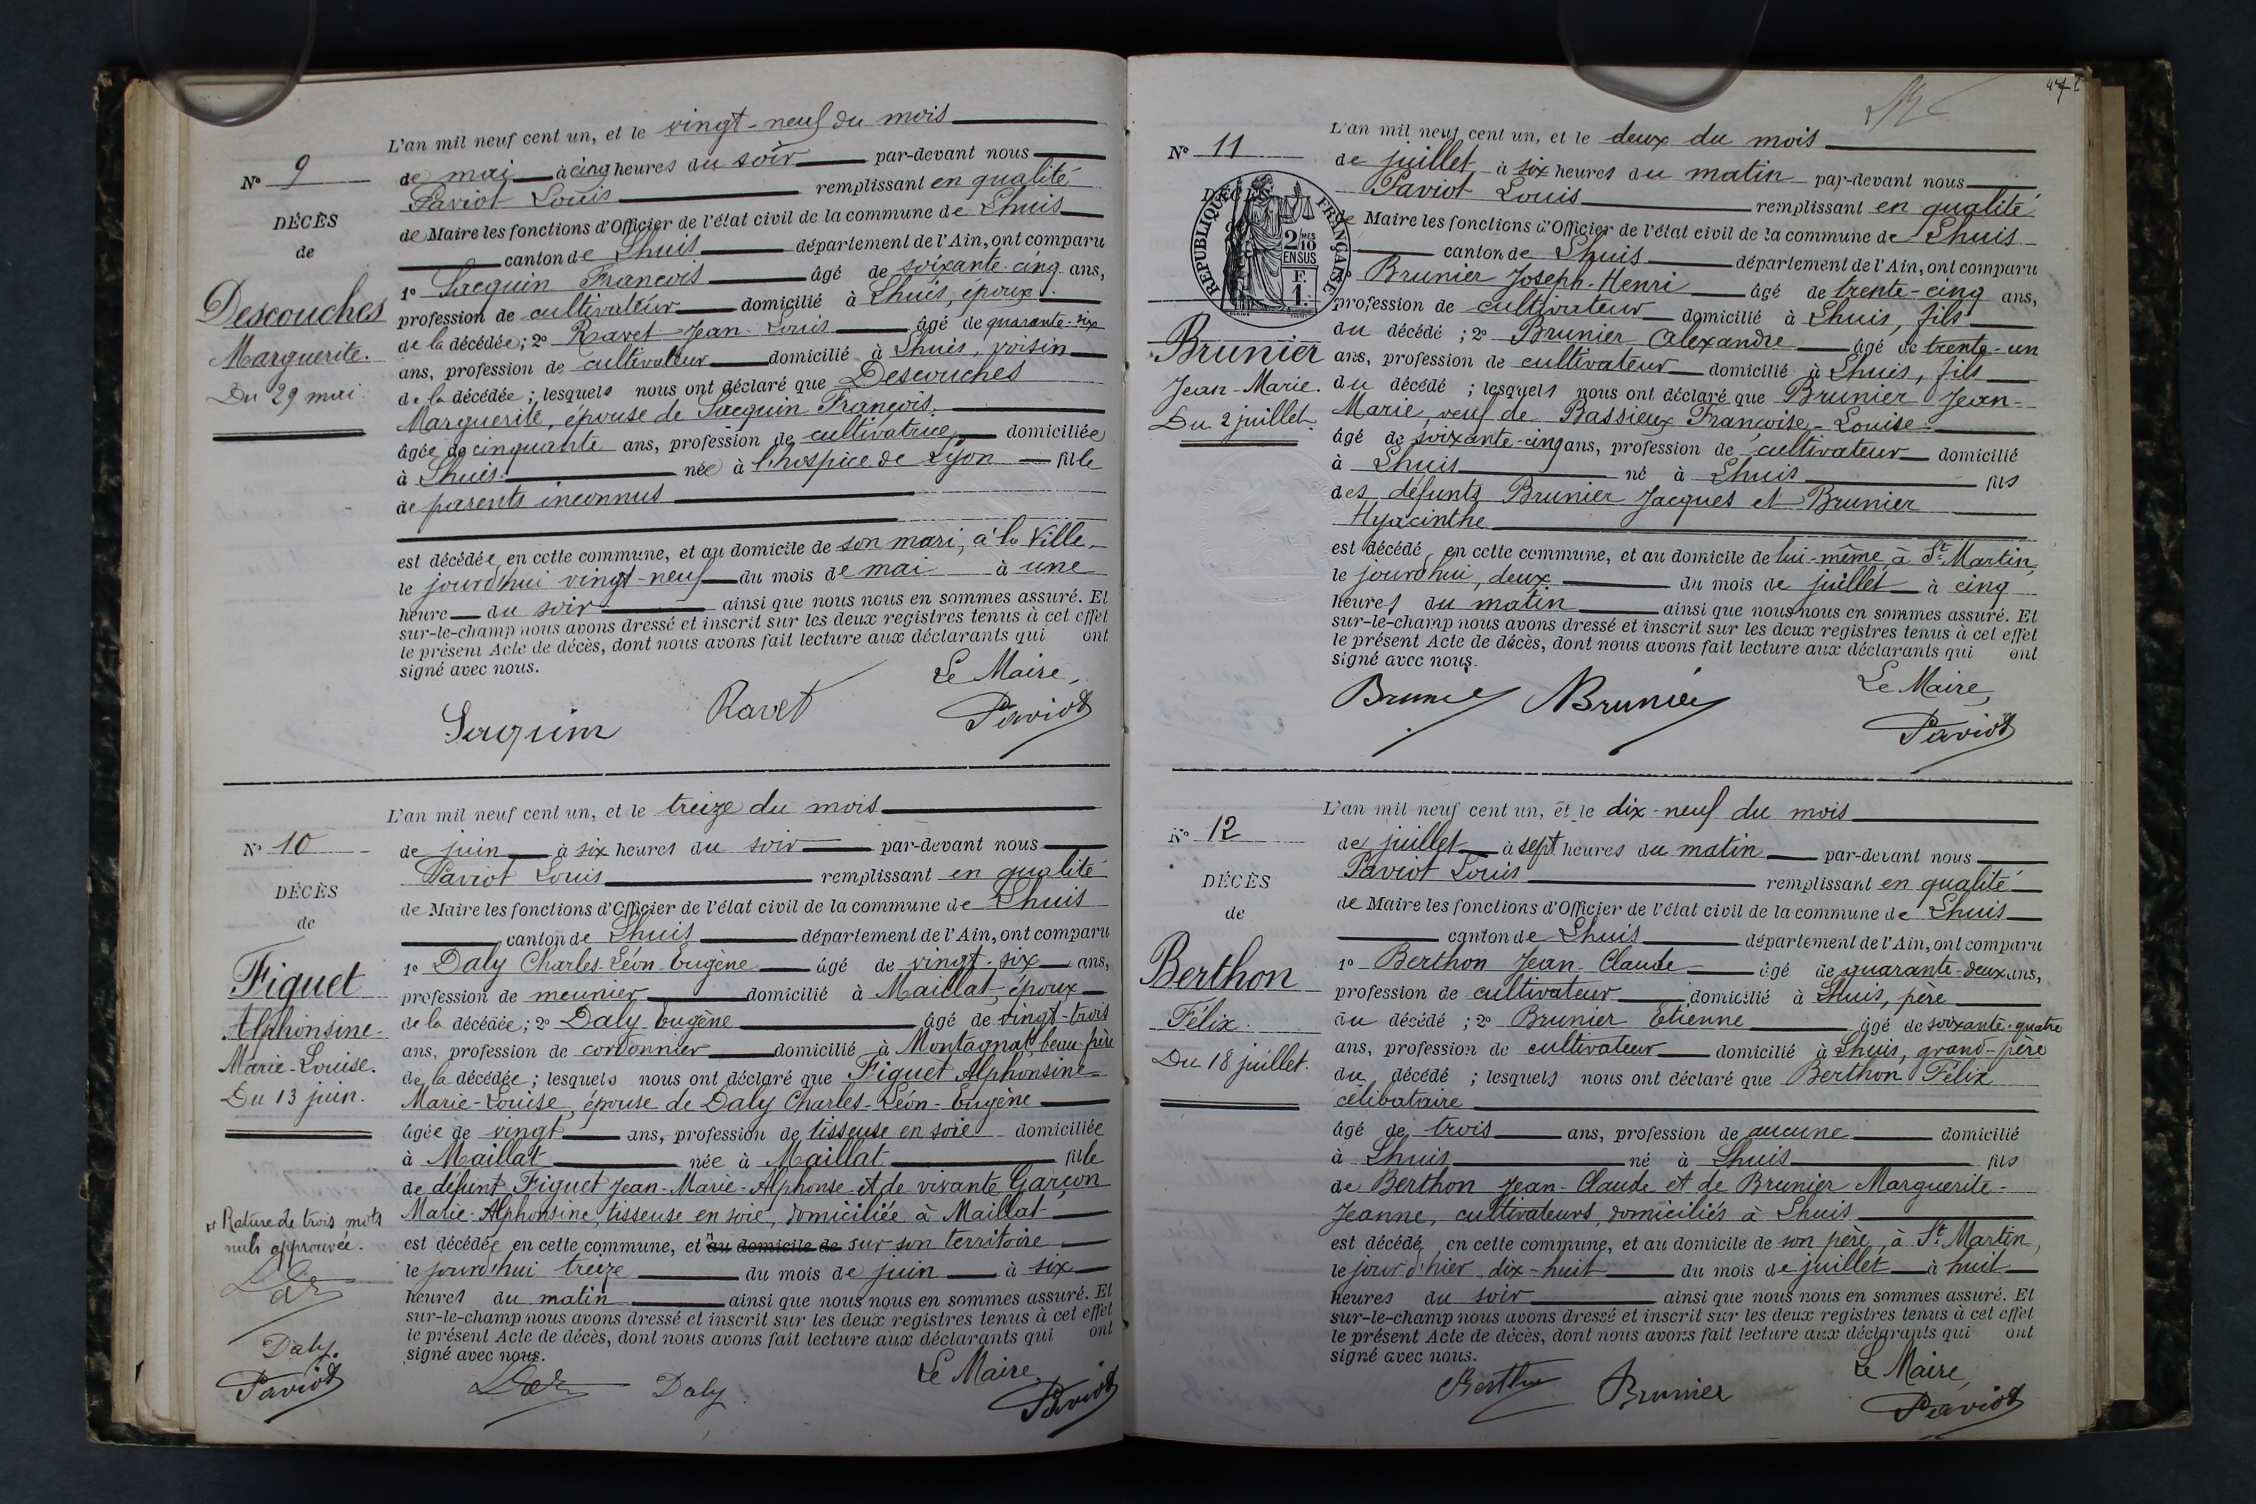 L'an mil neuf cent un, et le vingt-neuf du mois
N° 9
de mai à cinq heures du soir par-devant nous
Paviot Louis remplissant en qualité
DÉCÈS
de Maire les fonctions d'Officier de l'état civil de la commune de Lhuis
de
canton de Lhuis département de l'Ain, ont comparu
1° Sacquin François âgé de soixante-cinq ans,
Descouches
profession de cultivateur domicilié à Lhuis, époux
de la décédée; 2° Ravet Jean-Louis âgé de quarante-six
Marguerite.
ans, profession de cultivateur domicilié à Lhuis, voisin
Du 29 mai.
de la décédée; lesquels nous ont déclaré que Descouches
Marguerite, épouse de Sacquin François,
âgée de cinquante ans, profession de cultivatrice, domiciliée
à Lhuis. née à l'hospice de Lyon fille
de parents inconnus
est décédée en cette commune, et au domicile de son mari, à la Ville,
le jourd'hui vingt-neuf du mois de mai à une
heure du soir ainsi que nous nous en sommes assuré. Et
sur-le-champ nous avons dressé et inscrit sur les deux registres tenus à cet effet
le présent Acte de décès, dont nous avons fait lecture aux déclarants qui ont
signé avec nous.
Le Maire,
Saquin Ravet Paviot
L'an mil neuf cent un, et le treize du mois
N° 10
de juin à six heures du soir par-devant nous
Paviot Louis remplissant en qualité
DÉCÈS
de Maire les fonctions d'Officier de l'état civil de la commune de Lhuis
de
canton de Lhuis département de l'Ain, ont comparu
1° Daly Charles-Léon-Eugène âgé de vingt-six ans,
Figuet
profession de meunier domicilié à Maillat, époux
de la décédée; 2° Daly Eugène âgé de vingt-trois
Alphonsine-
ans, profession de cordonnier domicilié à Montagnat, beau-frère
Marie-Louise.
de la décédée; lesquels nous ont déclaré que Figuet Alphonsine-
Du 13 juin.
Marie-Louise, épouse de Daly Charles-Léon-Eugène
âgée de vingt ans, profession de tisseuse en soie domiciliée
à Maillat née à Maillat fille
de défunt Figuet Jean-Marie-Alphonse et de vivante Garçon
Marie-Alphonsine, tisseuse en soie, domiciliée à Maillat
Rature de trois mots
nuls approuvée.
est décédée en cette commune, et au domicile de sur son territoire
le jourd'hui treize du mois de juin à six
heures du matin ainsi que nous nous en sommes assuré. Et
sur-le-champ nous avons dressé et inscrit sur les deux registres tenus à cet effet
le présent Acte de décès, dont nous avons fait lecture aux déclarants qui ont
signé avec nous.
Daly.
Paviot
Le Maire,
Daly Paviot
L'an mil neuf cent un, et le deux du mois
N° 11
de juillet à six heures du matin par-devant nous
Paviot Louis remplissant en qualité
DÉCÈS
RÉPUBLIQUE FRANÇAISE
2/10 MES
EN SUS
F.
1.
de Maire les fonctions d'Officier de l'état civil de la commune de Lhuis
canton de Lhuis département de l'Ain, ont comparu
Brunier Joseph-Henri âgé de trente-cinq ans,
profession de cultivateur domicilié à Lhuis, fils
du décédé; 2° Brunier Alexandre âgé de trente-un
Brunier
ans, profession de cultivateur domicilié à Lhuis, fils
Jean-Marie.
du décédé; lesquels nous ont déclaré que Brunier Jean-
Du 2 juillet.
Marie, veuf de Bassieux Françoise-Louise.
âgé de soixante-cinq ans, profession de cultivateur domicilié
à Lhuis né à Lhuis fils
des défunts Brunier Jacques et Brunier
Hyacinthe
est décédé en cette commune, et au domicile de lui-même, à St-Martin,
le jourd'hui, deux du mois de juillet à cinq
heures du matin ainsi que nous nous en sommes assuré. Et
sur-le-champ nous avons dressé et inscrit sur les deux registres tenus à cet effet
le présent Acte de décès, dont nous avons fait lecture aux déclarants qui ont
signé avec nous.
Le Maire,
Brunier Paviot
L'an mil neuf cent un, et le dix-neuf du mois
N° 12
de juillet à sept heures du matin par-devant nous
Paviot Louis remplissant en qualité
DÉCÈS
de Maire les fonctions d'Officier de l'état civil de la commune de Lhuis
de
canton de Lhuis département de l'Ain, ont comparu
1° Berthon Jean-Claude âgé de quarante-deux ans,
Berthon
profession de cultivateur domicilié à Lhuis, père
du décédé; 2° Brunier Etienne âgé de soixante-quatre
Félix.
ans, profession de cultivateur domicilié à Lhuis, grand-père
Du 18 juillet.
du décédé; lesquels nous ont déclaré que Berthon Félix
célibataire
âgé de trois ans, profession de aucune domicilié
à Lhuis né à Lhuis fils
de Berthon Jean-Claude et de Brunier Marguerite-
Jeanne, cultivateurs domiciliés à Lhuis
est décédé en cette commune, et au domicile de son père, à St-Martin,
le jour d'hier dix-huit du mois de juillet à huit
heures du soir ainsi que nous nous en sommes assuré. Et
sur-le-champ nous avons dressé et inscrit sur les deux registres tenus à cet effet
le présent Acte de décès, dont nous avons fait lecture aux déclarants qui ont
signé avec nous.
Le Maire,
Berthon Brunier Paviot